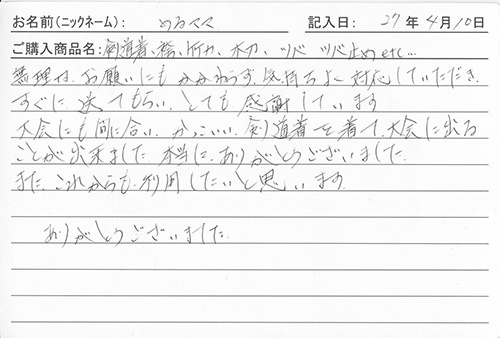 お名前(ニックネーム): ゆるママ 記入日: 27年4月10日
ご購入商品名: 剣道着、袴、竹刀、木刀、ツバ ツバ止め etc...
無理な、お願いにもかかわらず、気持ちよく対応していただき、
すぐに送ってもらい、とても感謝しています
大会にも間に合い、かっこいい、剣道着を着て、大会に出る
ことが出来ました 本当に、ありがとうございました。
また、これからも、利用したいと思います
ありがとうございました。